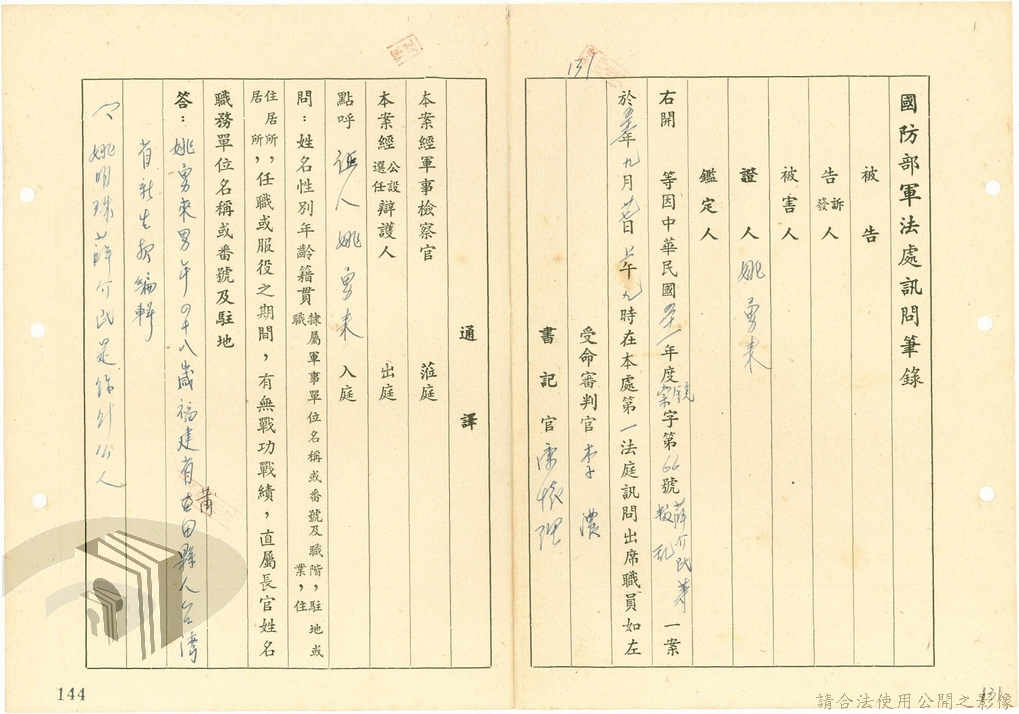 國防部軍法處訊問筆錄
被告
告訴發人
被害人
證人 姚勇來
鑑定人
右開 等因中華民國四十一年度 字第66號薛介民等叛亂一案
於 年九月 日上午九時在本處第一法庭訊問出席職員如左
受命審判官 李濃
書記官
通譯
本案經軍事檢察官 蒞庭
本案經公設選任辯護人 出庭
點呼 證人 姚勇來 入庭
問:姓名性別年齡籍貫隸屬軍事單位名稱或番號及職階,駐地或職業,住
住居所,任職或服役之期間,有無戰功戰績,直屬長官姓名
居所,
職務單位名稱或番號及駐地
答:姚勇來男年四十八歲福建省莆田縣人台灣
省新生報編輯
問 姚明珠薛介民是你什么人
144
131
131
請合法使用公開之影像